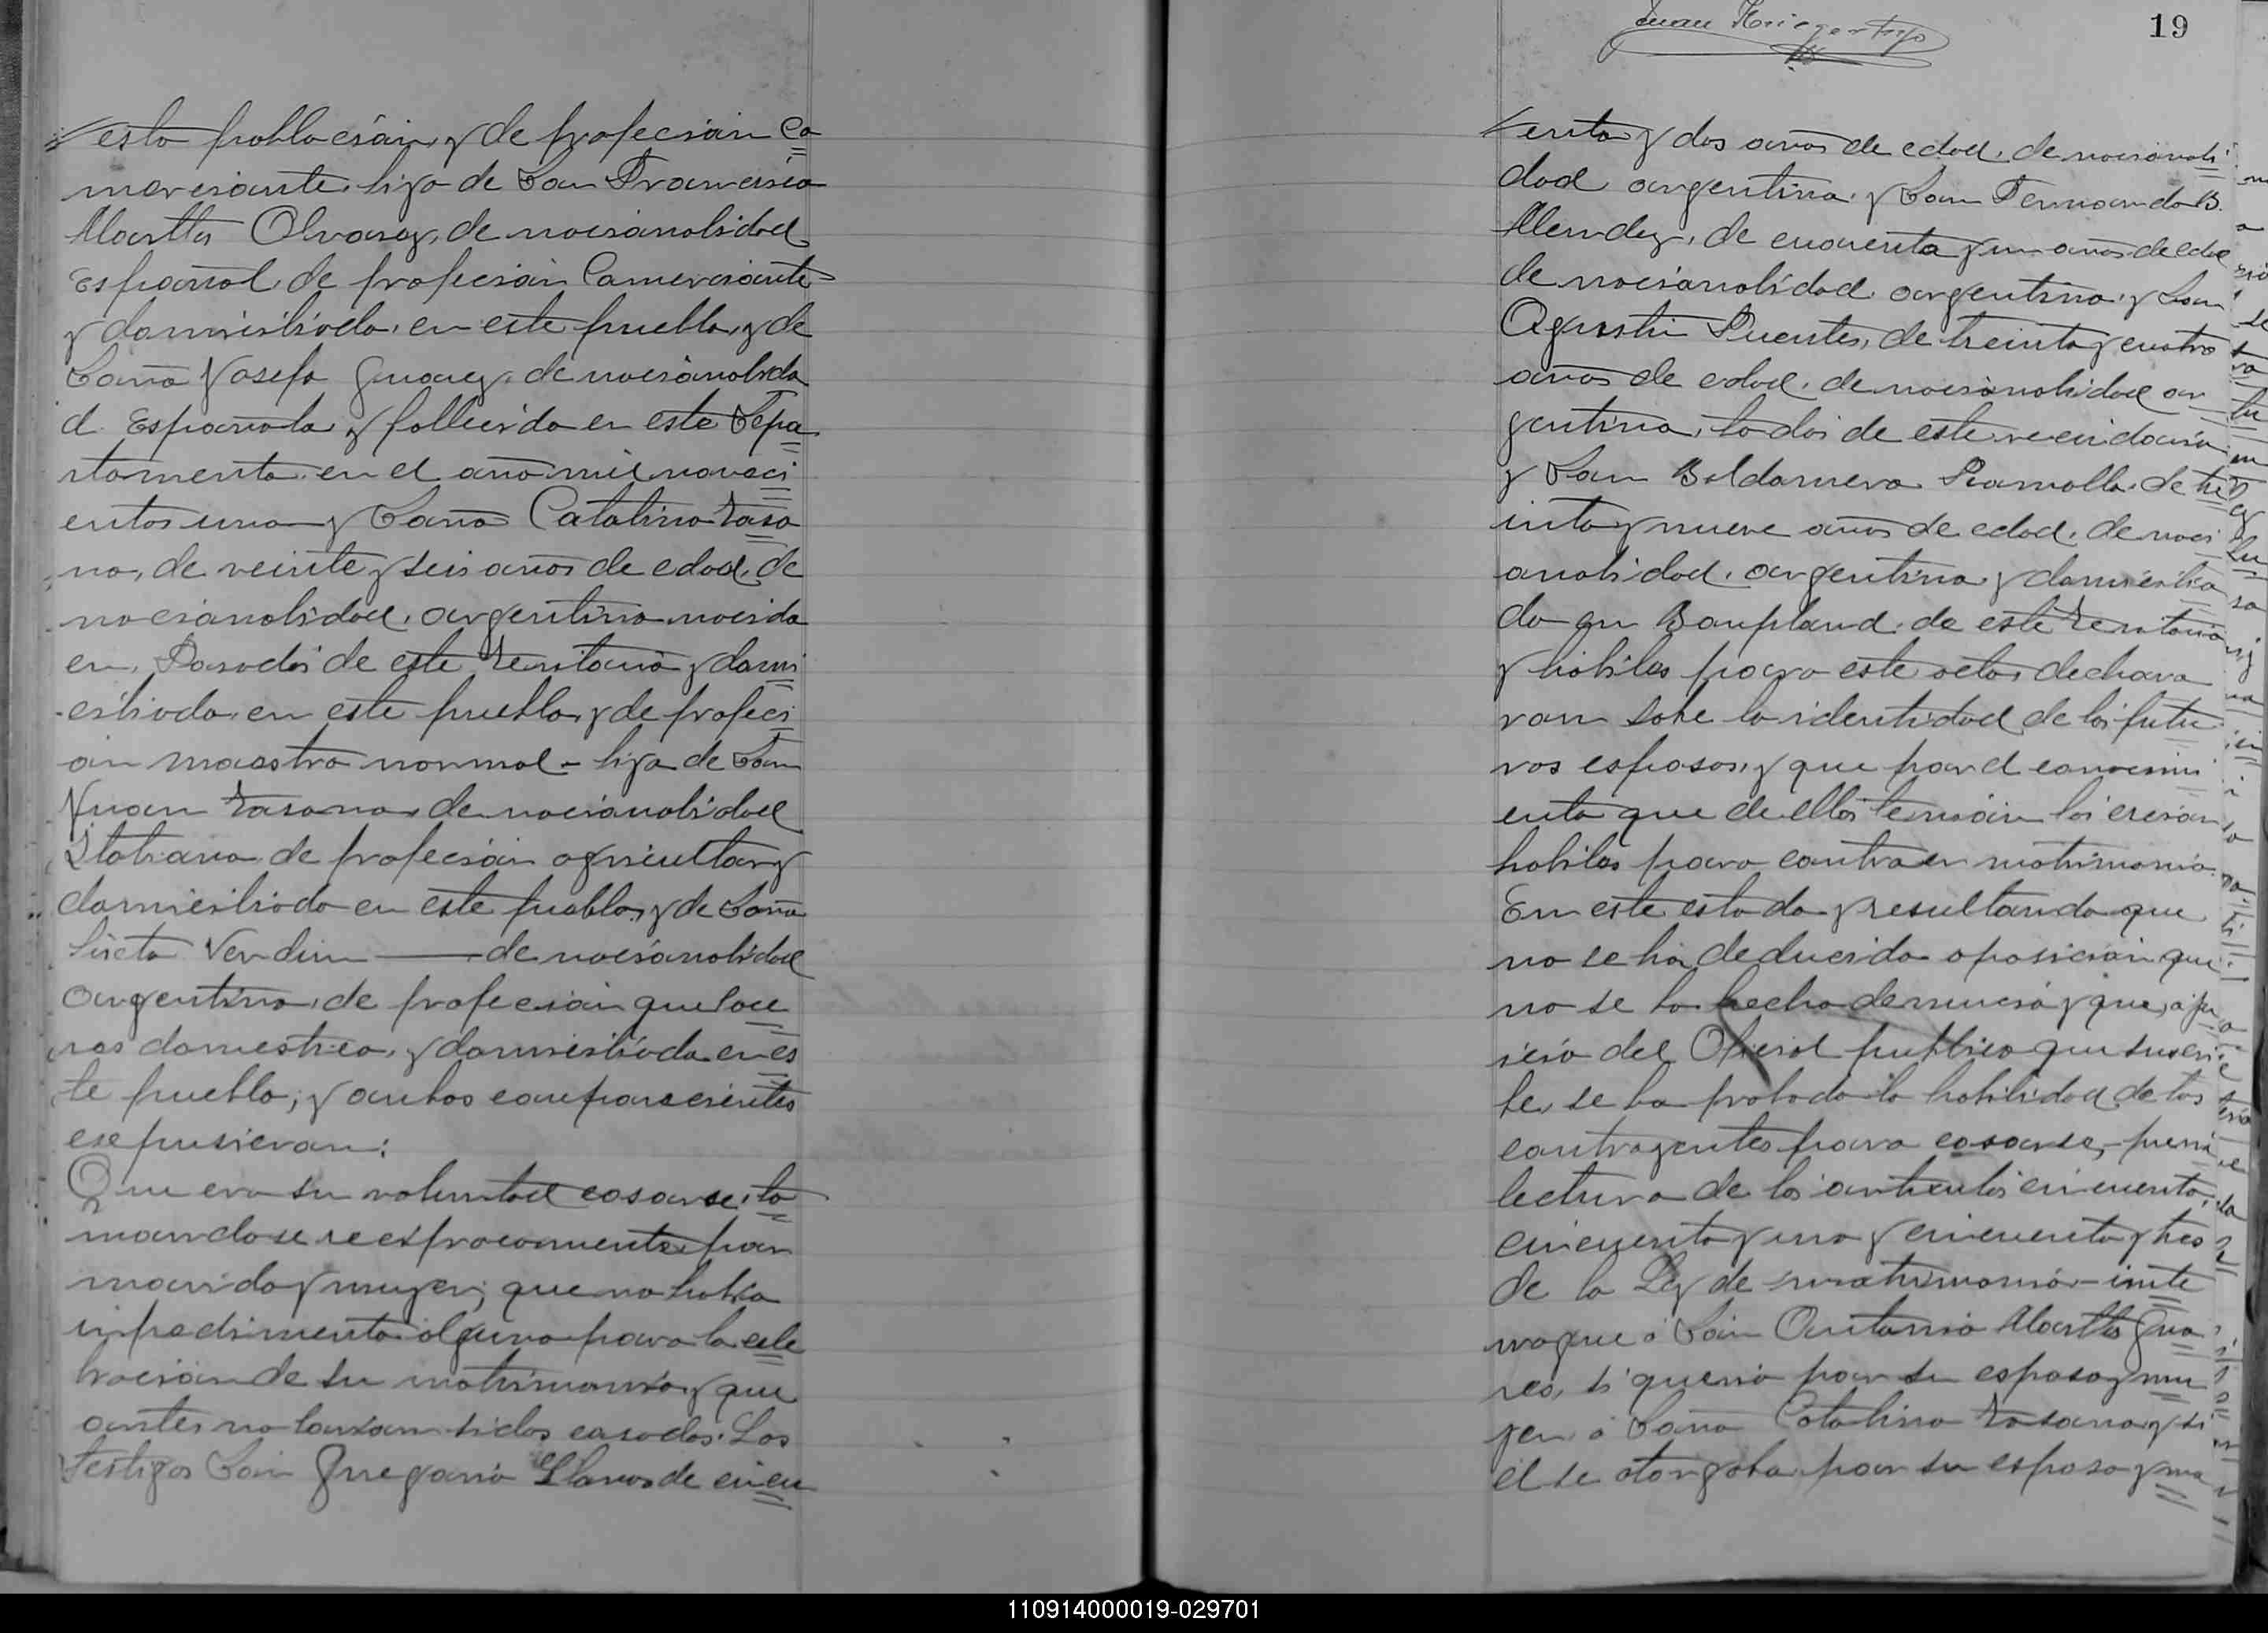 esta poblacsión, y de profecsión Co
mercsiante, hijo de Don Francsisco
Martto Alvarez, de nacsionalidad
Español, de profecsión Comercsiante
y domicsiliado, en este pueblo, y de
Doña Josefa Guarez, de nacsionalida
d. Española, y fallecida en este Depa
rtamento, en el año mil novaci
entos uno y Doña Catalina Tasa
no, de veinte y seis años de edad, de
nacsionalidad, argentina nacida
en, Posadas de este Territorio y domi
ciliada, en este pueblo, y de profeci
ón maestra normal - hija de Don
Juan Tasano, de nacsionalidad
Italiano, de profecsión agricultor y
domiciliado en este pueblo, y de Doña
Verdun de nacsionalidad
argentina, de profecsión quehace
res domestico, y domiciliada en es
te pueblo; y ambos comparecientes
expusieron:
Que era su voluntad casarse, to
mandose recsiprocamente por
marido y mujer; que no habia
impedimento alguno para la cele
bracsión de su matrimonio y que
antes no habian sidos casados. Los
testigos Don Gregorio Llano, de cincu
Juan Krieger hijo
19
enta y dos años de edad, de nacionali
dad argentina, y Don Fernando B.
Mendez, de cuarenta y un años de edad
de nacsionalidad argentina, y Don
Agustin Puentes, de treinta y cuatro
años de edad, de nacsionalidad ar
gentina, todos de este vecindario
y Don Baldomero Ramallo, de tre
inta y nueve años de edad, de naci
onalidad, argentina y domicilia
do en Bonpland, de este Territorio
y hábiles para este acto, declara
ron sobe la identidad de los futu
ros esposos, y que por el conocimi
ento que de ellos tenian los creian
habiles para contraer matrimonio.
En este estado y resultando que
no se ha deducido oposicsión que
no se ha hecho denuncia y que, a ju
icio del Oficial publico que suscri
be, se ha probado la habilidad de los
contrayentes para casarse, previ
lectura de los articulos cincuenta,
cincuenta y uno y cincuenta y tres
de la Ley de matrimonio - inte
rrogue á Don Antonio Martto Gua
res, si queria por su esposa y mu
jer á Doña Catalina Tasano, y si
él se otorgaba por su esposo y ma
110914000019-029701